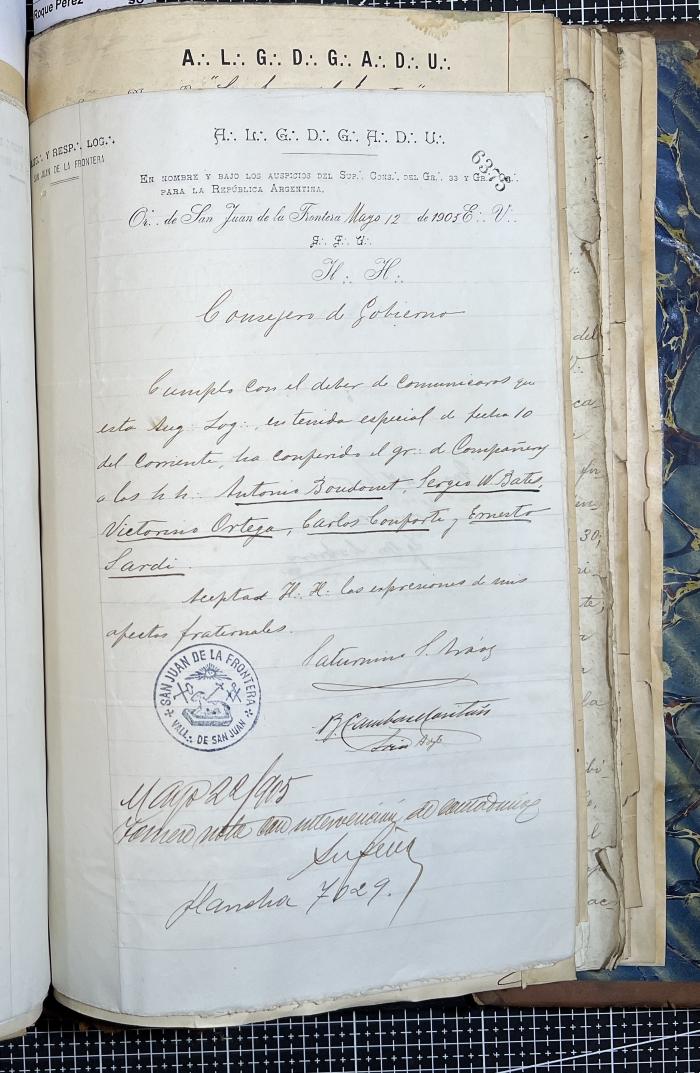 Roque Perez
A∴ L∴ G∴ D∴ G∴ A∴ D∴ U∴
Y RESP∴ LOG∴
SAN JUAN DE LA FRONTERA
A∴ L∴ G∴ D∴ G∴ A∴ D∴ U∴
6375
EN NOMBRE Y BAJO LOS AUSPICIOS DEL SUP∴ CONS∴ DEL GR∴ 33 Y GR∴
PARA LA REPÚBLICA ARGENTINA.
Or∴ de San Juan de la Frontera Mayo 12 de 1905 E∴ V∴
S∴ F∴ U∴
H∴ H∴
Consejero de Gobierno
Cumplo con el deber de comunicaros que
esta Aug∴ Log∴ en tenida especial de fecha 10
del corriente, ha conferido el gr∴ de Compañeros
a los h h∴ Antonio Boudonet, Sergio W. Bates,
Victorino Ortega, Carlos Conforte y Ernesto
Sardi.
Aceptad H∴ H∴ las expresiones de mis
afectos fraternales.
Saturnino S. Aráoz
SAN JUAN DE LA FRONTERA
VALL∴ DE SAN JUAN
Mayo 22/905
nota con intervención de
Plancha 7029.